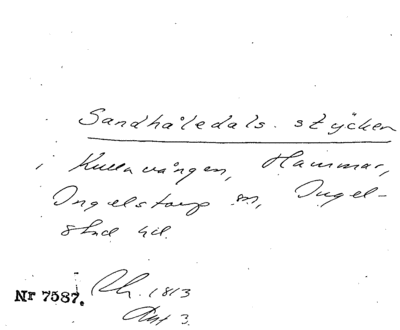 Sandhåledals. stycken
i Kullavången, Hammar,
Ingelstorp sn, Ingel-
stad hd.
Nr 7587. Rh. 1813
Akt 3.